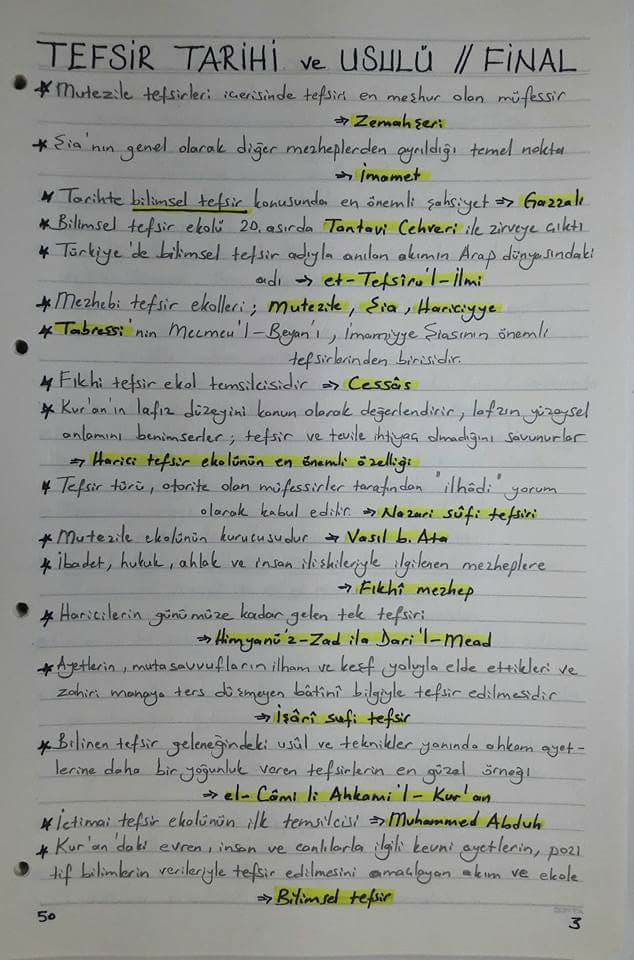 TEFSİR TARİHİ ve USULÜ // FİNAL
* Mutezile tefsirleri içerisinde tefsiri en meşhur olan müfessir
⇒ Zemahşeri
* Şia'nın genel olarak diğer mezheplerden ayrıldığı temel nokta
⇒ İmamet
* Tarihte bilimsel tefsir konusunda en önemli şahsiyet ⇒ Gazzali
* Bilimsel tefsir ekolü 20. asırda Tantavi Cevheri ile zirveye çıktı
* Türkiye'de bilimsel tefsir adıyla anılan akımın Arap dünyasındaki
adı ⇒ et-Tefsiru'l-İlmi
* Mezhebi tefsir ekolleri; Mutezile, Şia, Hariciyye
* Tabressi'nin Mecmeu'l-Beyan'ı, İmamiyye Şiasının önemli
tefsirlerinden birisidir.
* Fıkhi tefsir ekol temsilcisidir ⇒ Cessâs
* Kur'an'ın lafız düzeyini kanun olarak değerlendirir, lafzın yüzeysel
anlamını benimserler; tefsir ve tevile ihtiyaç olmadığını savunurlar
⇒ Harici tefsir ekolünün en önemli özelliği
* Tefsir türü, otorite olan müfessirler tarafından "ilhâdi" yorum
olarak kabul edilir. ⇒ Nazari sûfi tefsiri
* Mutezile ekolünün kurucusudur ⇒ Vasıl b. Ata
* İbadet, hukuk, ahlak ve insan ilişkileriyle ilgilenen mezheplere
⇒ Fıkhî mezhep
* Haricilerin günümüze kadar gelen tek tefsiri
⇒ Himyanü'z-Zad ila Dari'l-Mead
* Ayetlerin, mutasavvufların ilham ve keşf yoluyla elde ettikleri ve
zahiri manaya ters düşmeyen bâtinî bilgiyle tefsir edilmesidir
⇒ İşârî sufi tefsir
* Bilinen tefsir geleneğindeki usûl ve teknikler yanında ahkam ayet-
lerine daha bir yoğunluk veren tefsirlerin en güzel örneği
⇒ el-Câmi li Ahkami'l-Kur'an
* İctimai tefsir ekolünün ilk temsilcisi ⇒ Muhammed Abduh
* Kur'an'daki evren, insan ve canlılarla ilgili kevni ayetlerin, pozi
tif bilimlerin verileriyle tefsir edilmesini amaçlayan akım ve ekole
⇒ Bilimsel tefsir
50
3